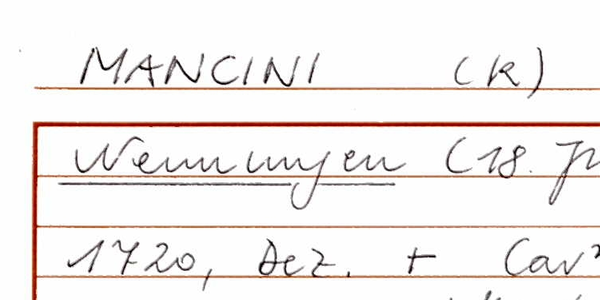 MANCINI (K)
Nennungen (18. J
1720, Dez. + Cav